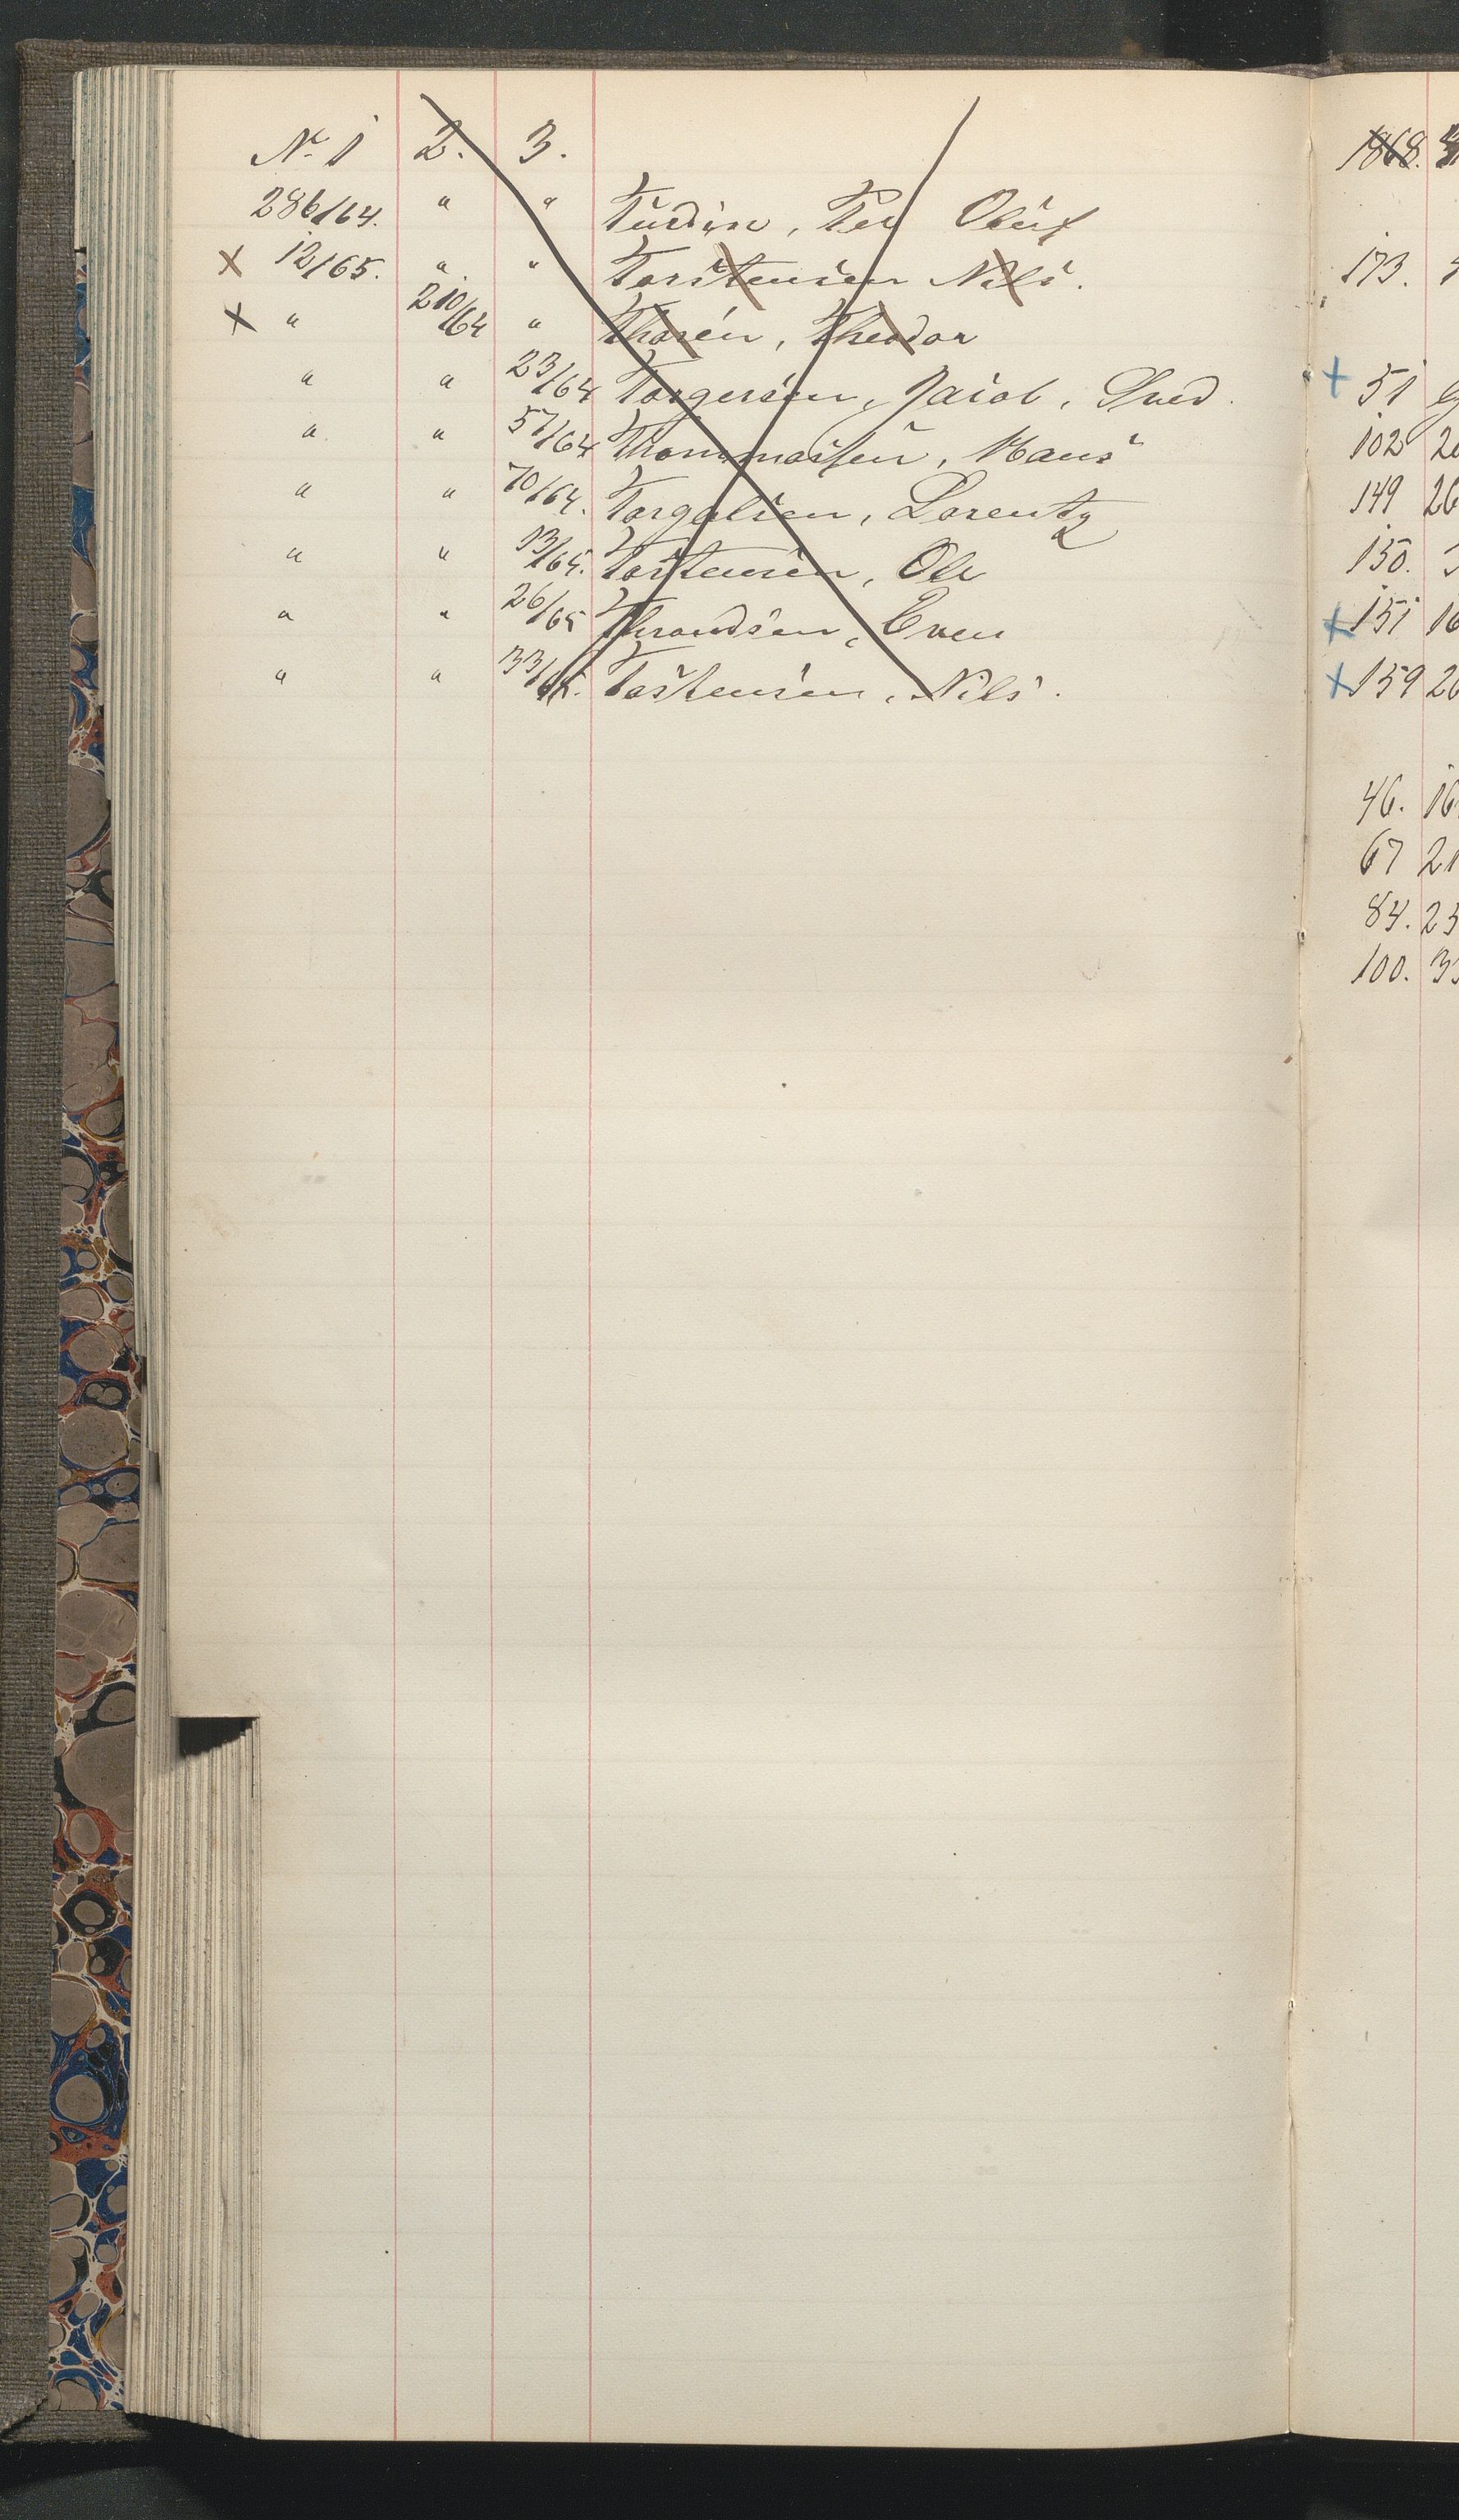 No 1 2. 3.
286/64. " " Tursin, Per Oluf
X 12/65. " " Torstensen Nils.
X " 210/64 " Thorén, Theodor
" " 23/64 Torgersen, Jacob, Sved.
" " 57/64 Thommassen, Hans
" " 70/64. Torgalsen, Lorentz
" " 13/65. Tostensen, Ole
" " 26/65 Throndsen, Even
" " 33/65. Tostensen, Nils.
1868.
173.
+ 51
102
149 26
150.
+ 151 16
+ 159 26
46. 16
67 21
84. 23
100.